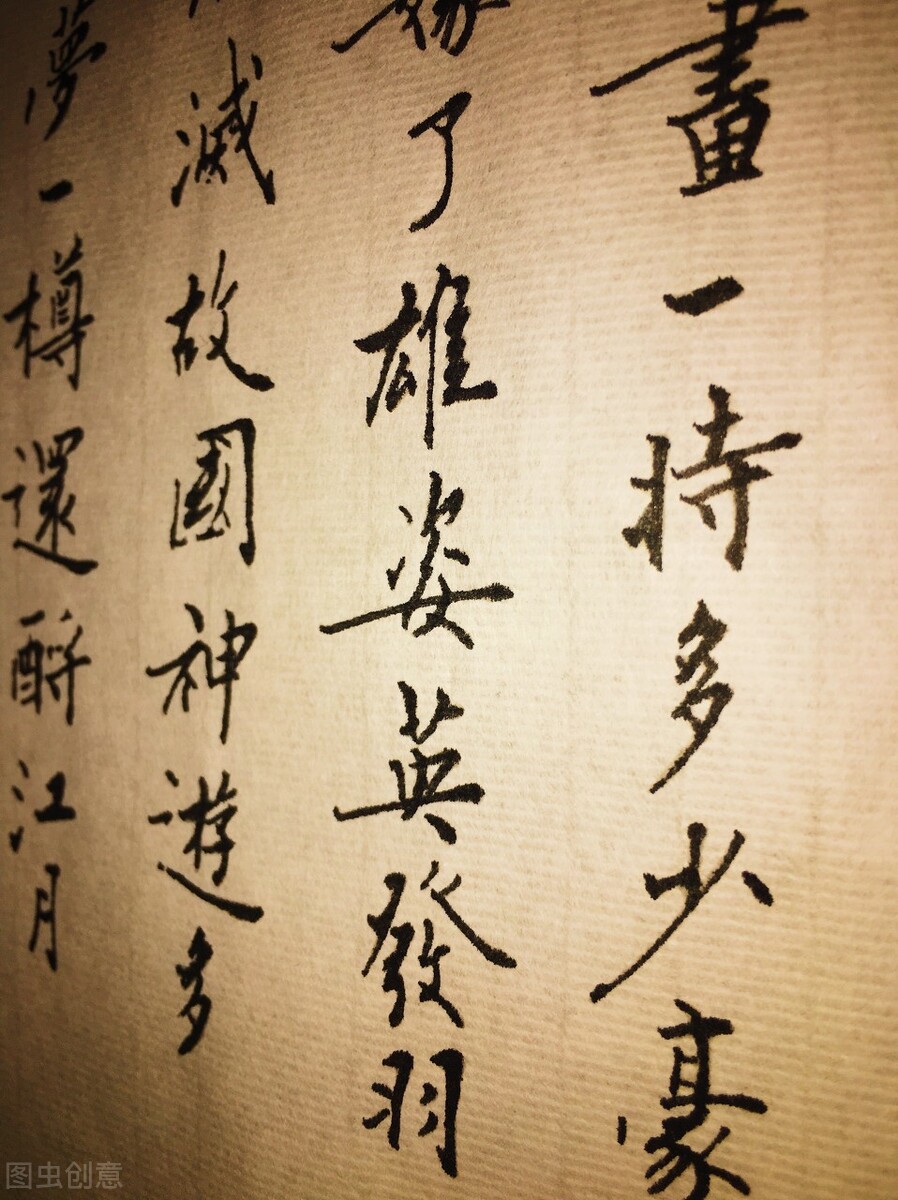 畫一時多少豪
嫁了雄姿英發羽
滅故國神遊多
夢一樽還酹江月
图虫创意